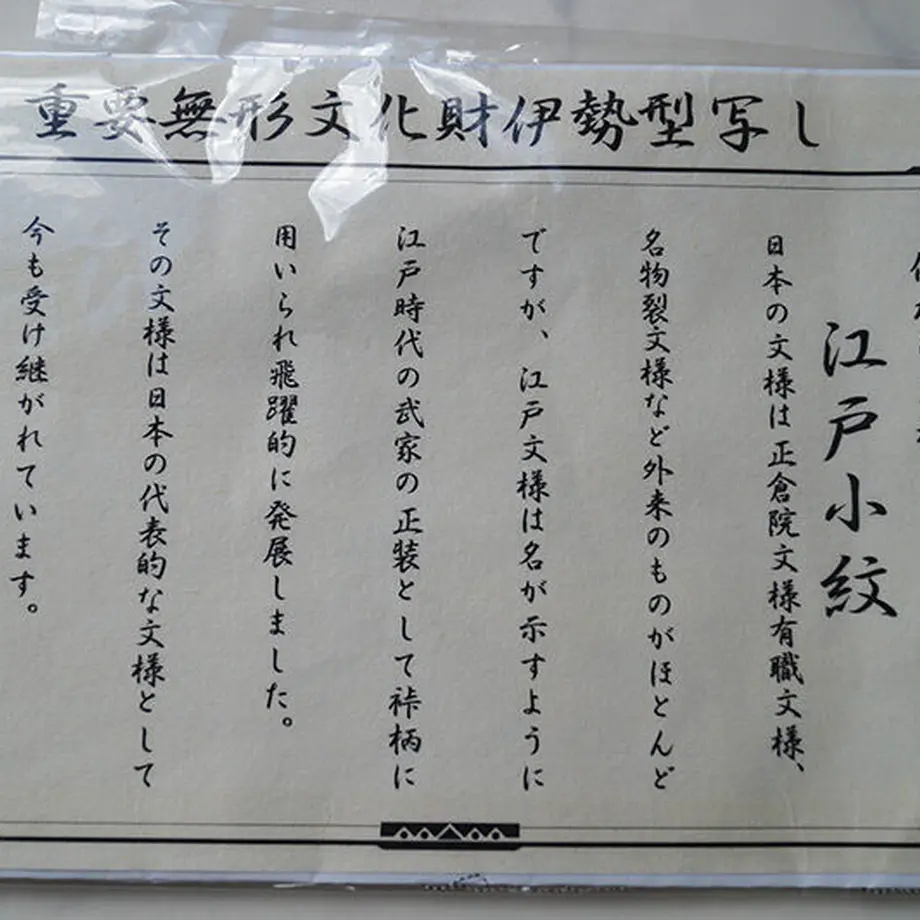 重要無形文化財伊勢型写し
江戸小紋
日本の文様は正倉院文様有職文様、
名物裂文様など外来のものがほとんど
ですが、江戸文様は名が示すように
江戸時代の武家の正装として裃柄に
用いられ飛躍的に発展しました。
その文様は日本の代表的な文様として
今も受け継がれています。